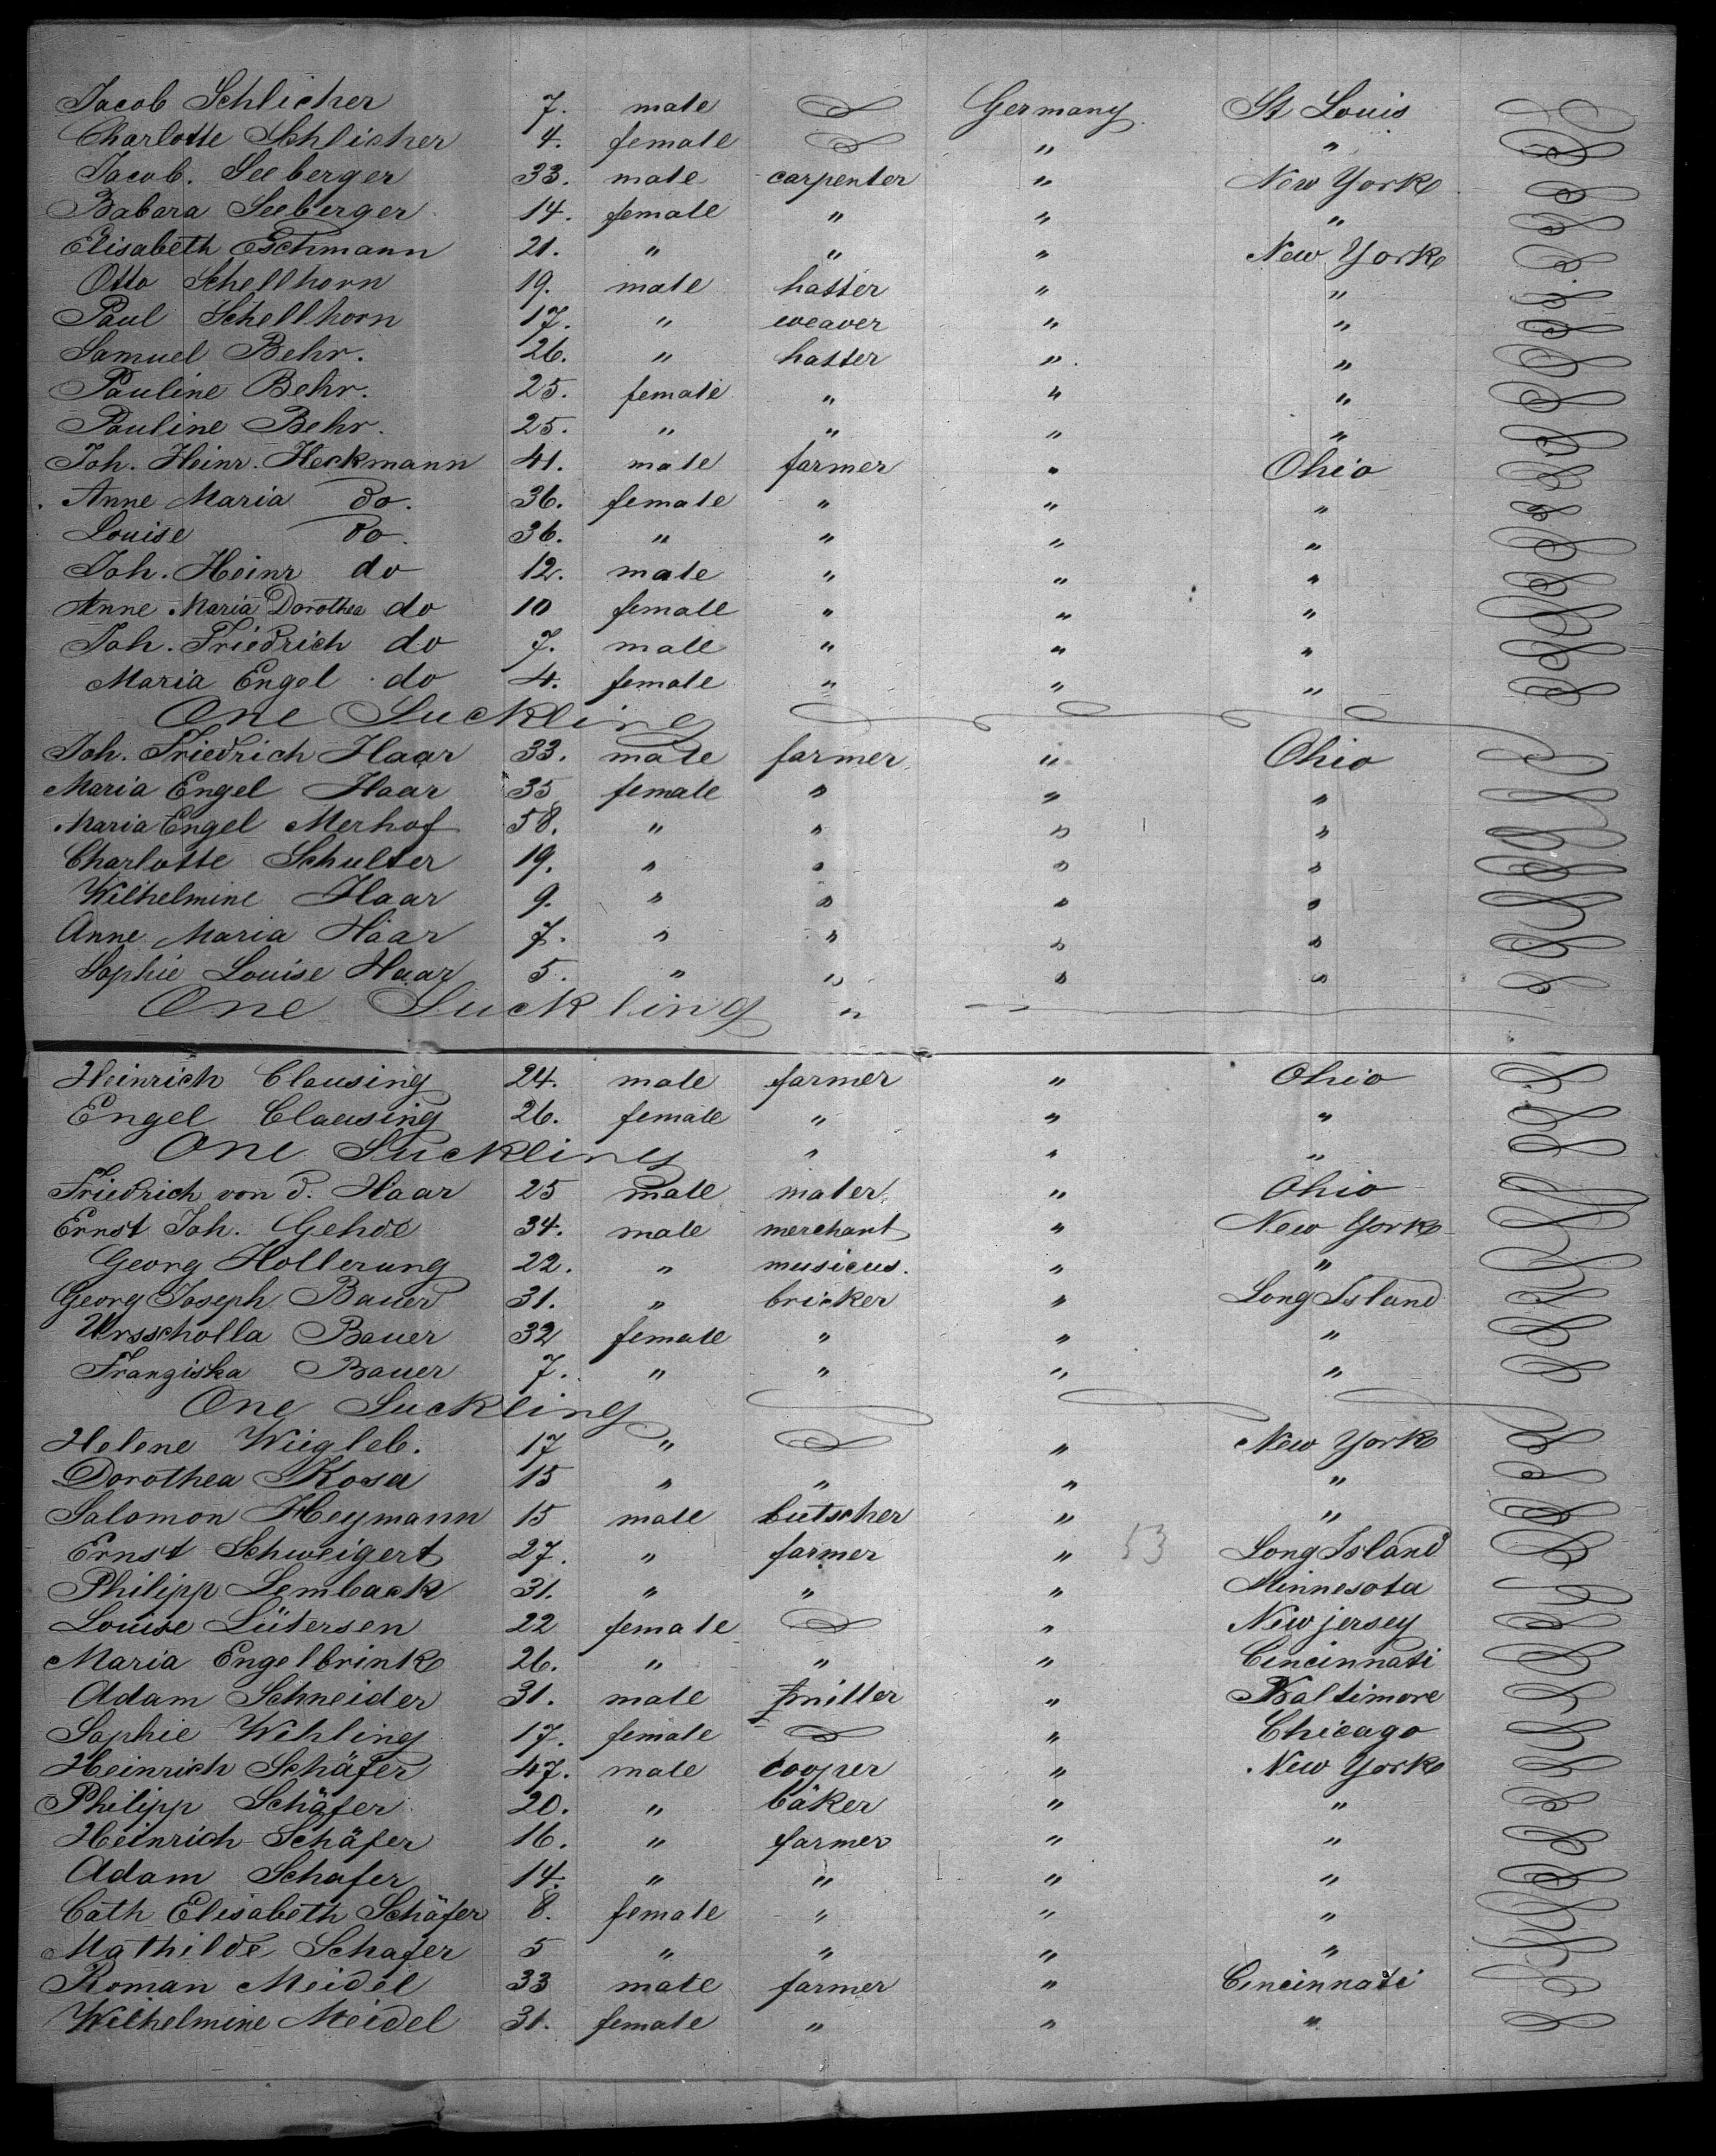 Jacob Schlicher 7. male Germany St Louis
Charlotte Schlicher 4. female " "
Jacob. Seeberger 33. male carpenter " New York
Babara Seeberger 14. female " " "
Elisabeth Eschmann 21. " " " New York
Otto Schellhorn 19. male hatter " "
Paul Schellhorn 17. " weaver " "
Samuel Behr. 26. " hatter " "
Pauline Behr. 25. female " " "
Pauline Behr. 25. " " " "
Joh. Heinr. Heckmann 41. male farmer " Ohio
Anne Maria do. 36. female " " "
Louise do. 36. " " " "
Joh. Heinr do 12. male " " "
Anne Maria Dorothea do 10 female " " "
Joh. Friedrich do 7. male " " "
Maria Engel do 4. female " " "
One Suckling
Joh. Friedrich Haar 33. male farmer " Ohio
Maria Engel Haar 35 female " " "
Maria Engel Merhof 58. " " " "
Charlotte Schulter 19. " " " "
Wilhelmine Haar 9. " " " "
Anne Maria Haar 7. " " " "
Sophie Louise Haar 5. " " " "
One Suckling "
Heinrich Clausing 24. male farmer " Ohio
Engel Clausing 26. female " " "
One Suckling " " "
Friedrich von d. Haar 25 male maler. " Ohio
Ernst Joh. Gehde 34. male merchant " New York
Georg Hollerung 22. " musicus. " "
Georg Joseph Bauer 31. " bricker " Long Island
Ursscholla Bauer 32 female " " "
Franziska Bauer 7. " " " "
One Suckling
Helene Wiegleb. 17 " " New York
Dorothea Kosa 15 " " " "
Salomon Heymann 15 male butscher " "
Ernst Schweigert 27. " farmer " 53 Long Island
Philipp Lemback 31. " " " Minnesota
Louise Lütersen 22 female " New jersey
Maria Engelbrink 26. " " " Cincinnati
Adam Schneider 31. male miller " Baltimore
Sophie Wehling 17. female " Chicago
Heinrich Schäfer 47. male cooper " New York
Philipp Schäfer 20. " bäker " "
Heinrich Schäfer 16. " farmer " "
Adam Schafer 14. " " " "
Cath Elisabeth Schäfer 8. female " " "
Mathilde Schafer 5 " " " "
Roman Meidel 33 male farmer " Cincinnati
Wilhelmine Meidel 31. female " " "